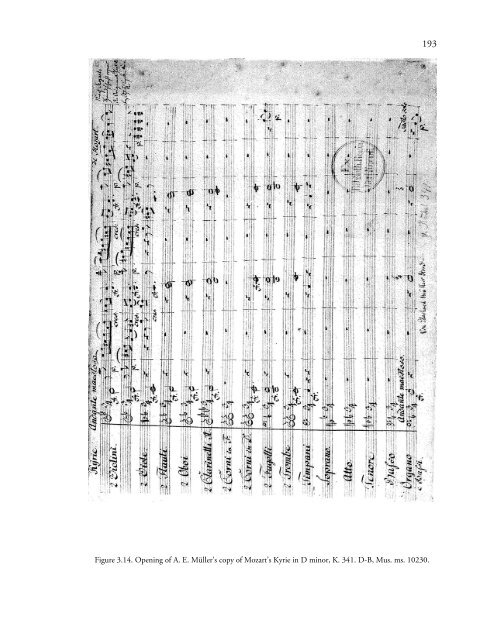 193
Kyrie. Andante maestoso.
Mozart.
2 Violini.
2 Viole
2 Flauti
2 Oboi
2 Clarinetti A.
2 Corni in F.
2 Corni in D.
2 Fagotti
2 Trombe
Timpani
Soprano.
Alto.
Tenore.
Basso Andante maestoso.
Organo
e Bassi.
Figure 3.14. Opening of A. E. Müller's copy of Mozart's Kyrie in D minor. K. 341. D-B, Mus. ms. 10230.